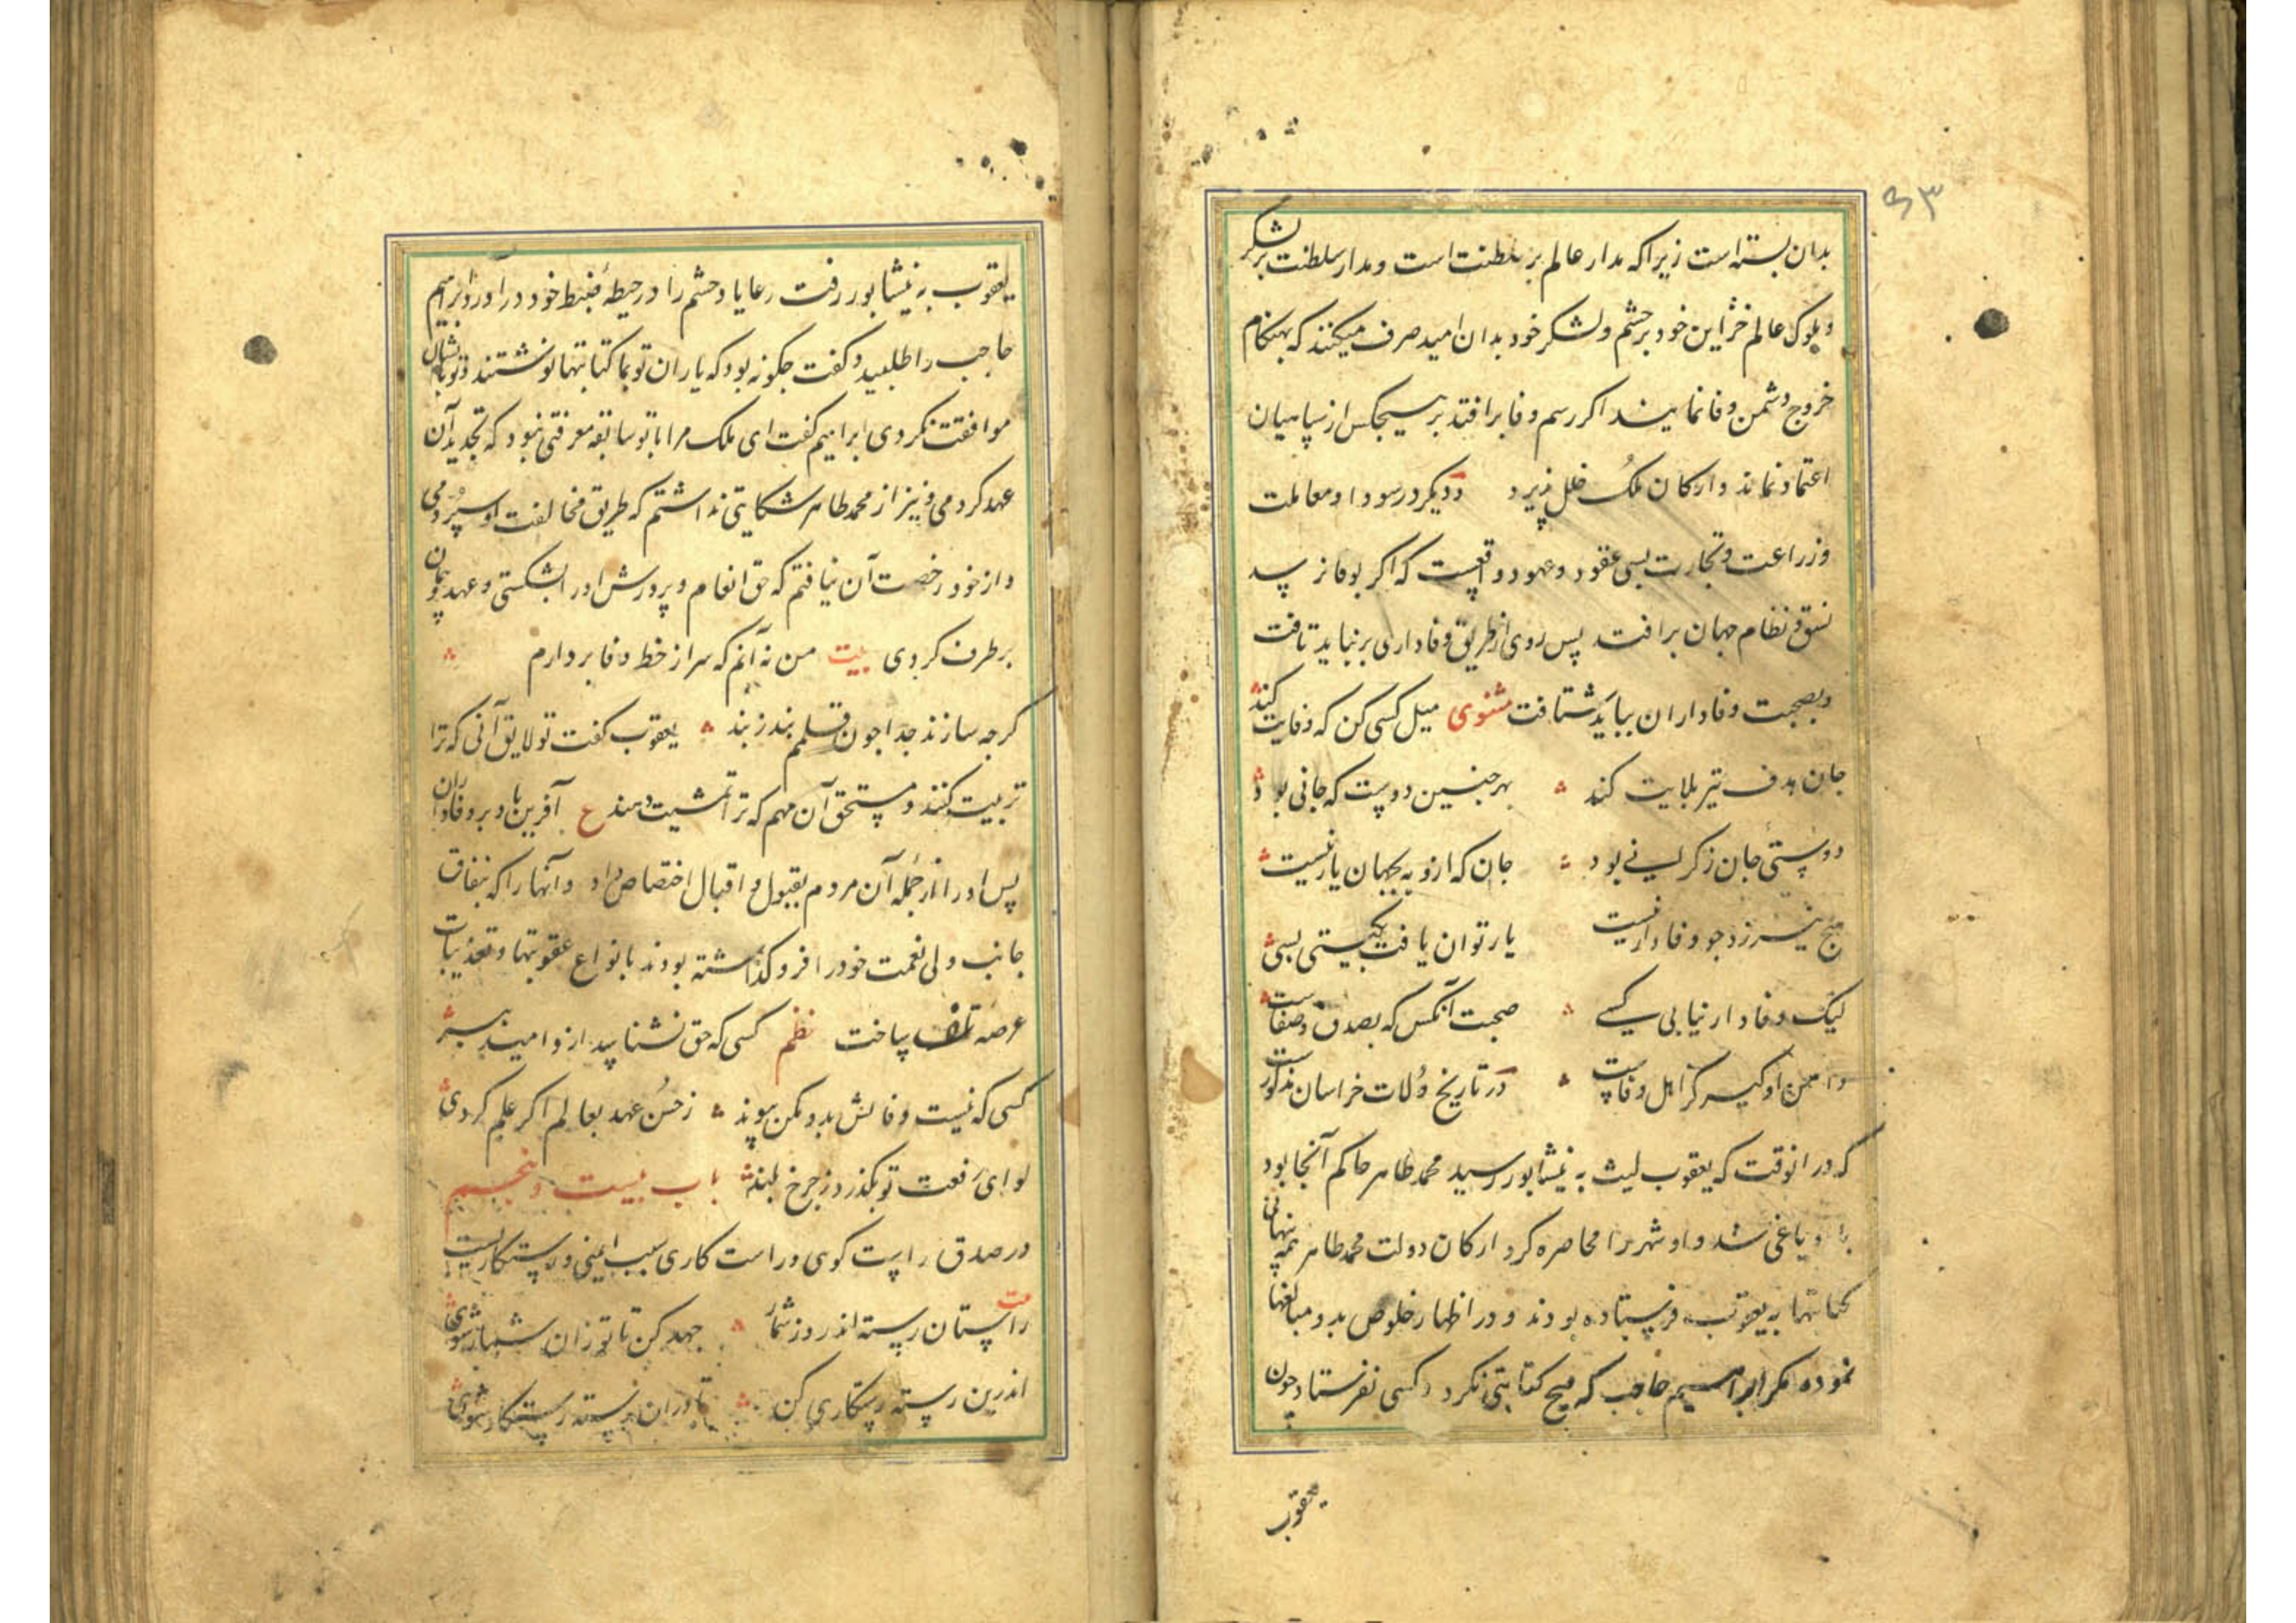 ۶۳
بدان بسته است زیرا که مدار عالم بر سلطنت است و مدار سلطنت بر لشکر
و ملوک عالم خزاین خود بر حشم و لشکر خود بدان امید صرف میکنند که بهنکام
خروج دشمن وفا نمایند اکر رسم وفا برافتد بر هیچکس از سپاهیان
اعتماد نماند و ارکان ملک خلل پذیرد و دیکر در سودا و معاملت
و زراعت و تجارت بسی عقود و عهود واقعست که اکر بوفا نرسد
نسق و نظام جهان برافتد پس روی از طریق وفاداری برنباید تافت
و بصحبت وفاداران بباید شتافت مثنوی میل کسی کن که وفایت کند
جان هدف تیر بلایت کند بهر چنین دوست که جانی بود
دوستی جان ز کرانی بود جان که ازو به بجهان یار نیست
هیچ نیرزد چو وفادار نیست یار توان یافت بکیتی بسی
لیک وفادار نیابی کسی صحبت آنکس که بصدق و صفاست
دامن او کیر کز اهل وفاست در تاریخ ولات خراسان مذکورست
که در انوقت که یعقوب لیث به نیشابور رسید محمد طاهر حاکم آنجا بود
با او یاغی شد و او شهر را محاصره کرد ارکان دولت محمد طاهر همه پنهانی
کتابتها به یعقوب فرستاده بودند و در اظهار خلوص بدو مبالغها
نموده مکر ابراهیم حاجب که هیچ کتابتی نکرد و کسی نفرستاد چون
یعقوب
یعقوب به نیشابور رفت رعایا و حشم را در حیطهٔ ضبط خود دراورد ابراهیم
حاجب را طلبید و کفت چکونه بود که یاران تو بما کتابتها نوشتند و تو با ایشان
موافقت نکردی ابراهیم کفت ای ملک مرا با تو سابقه معرفتی نبود که تجدید آن
عهد کردمی و نیز از محمد طاهر شکایتی نداشتم که طریق مخالفت او سپردمی
و از خود رخصت آن نیافتم که حق انعام و پرورش او را شکستی و عهد و پیمان
برطرف کردی بیت من نه آنم که سر از خط وفا بردارم
کرچه سازند جدا چون قلمم بند ز بند یعقوب کفت تو لایق آنی که ترا
تربیت کنند و مستحق آن مهم که ترا تمشیت دهند ع آفرین باد بر وفاداران
پس او را از جمله آن مردم بقبول و اقبال اختصاص داد و آنها را که بنفاق
جانب ولی نعمت خود را فروکذاشته بودند بانواع عقوبتها و تعذیبات
عرصه تلف ساخت نظم کسی که حق نشناسد ازو امید مبر
کسی که نیست وفایش بدو مکن پیوند ز حسن عهد بعالم اکر علم کردی
لوای رفعت تو بکذرد ز چرخ بلند باب بیست و پنجم
در صدق راست کوی و راست کاری سبب ایمنی و رستکاریست
بیت راستان رسته اند روز شمار جهد کن تا تو زان شمار شوی
اندرین رسته رستکاری کن تا دران رسته رستکار شوی